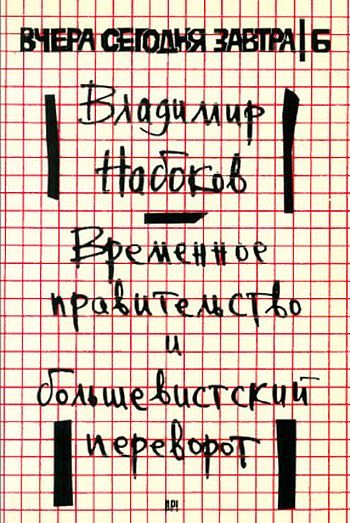 ВЧЕРА СЕГОДНЯ ЗАВТРА|6
Владимир
Набоков
Временное
правительство
и
большевистский
переворот